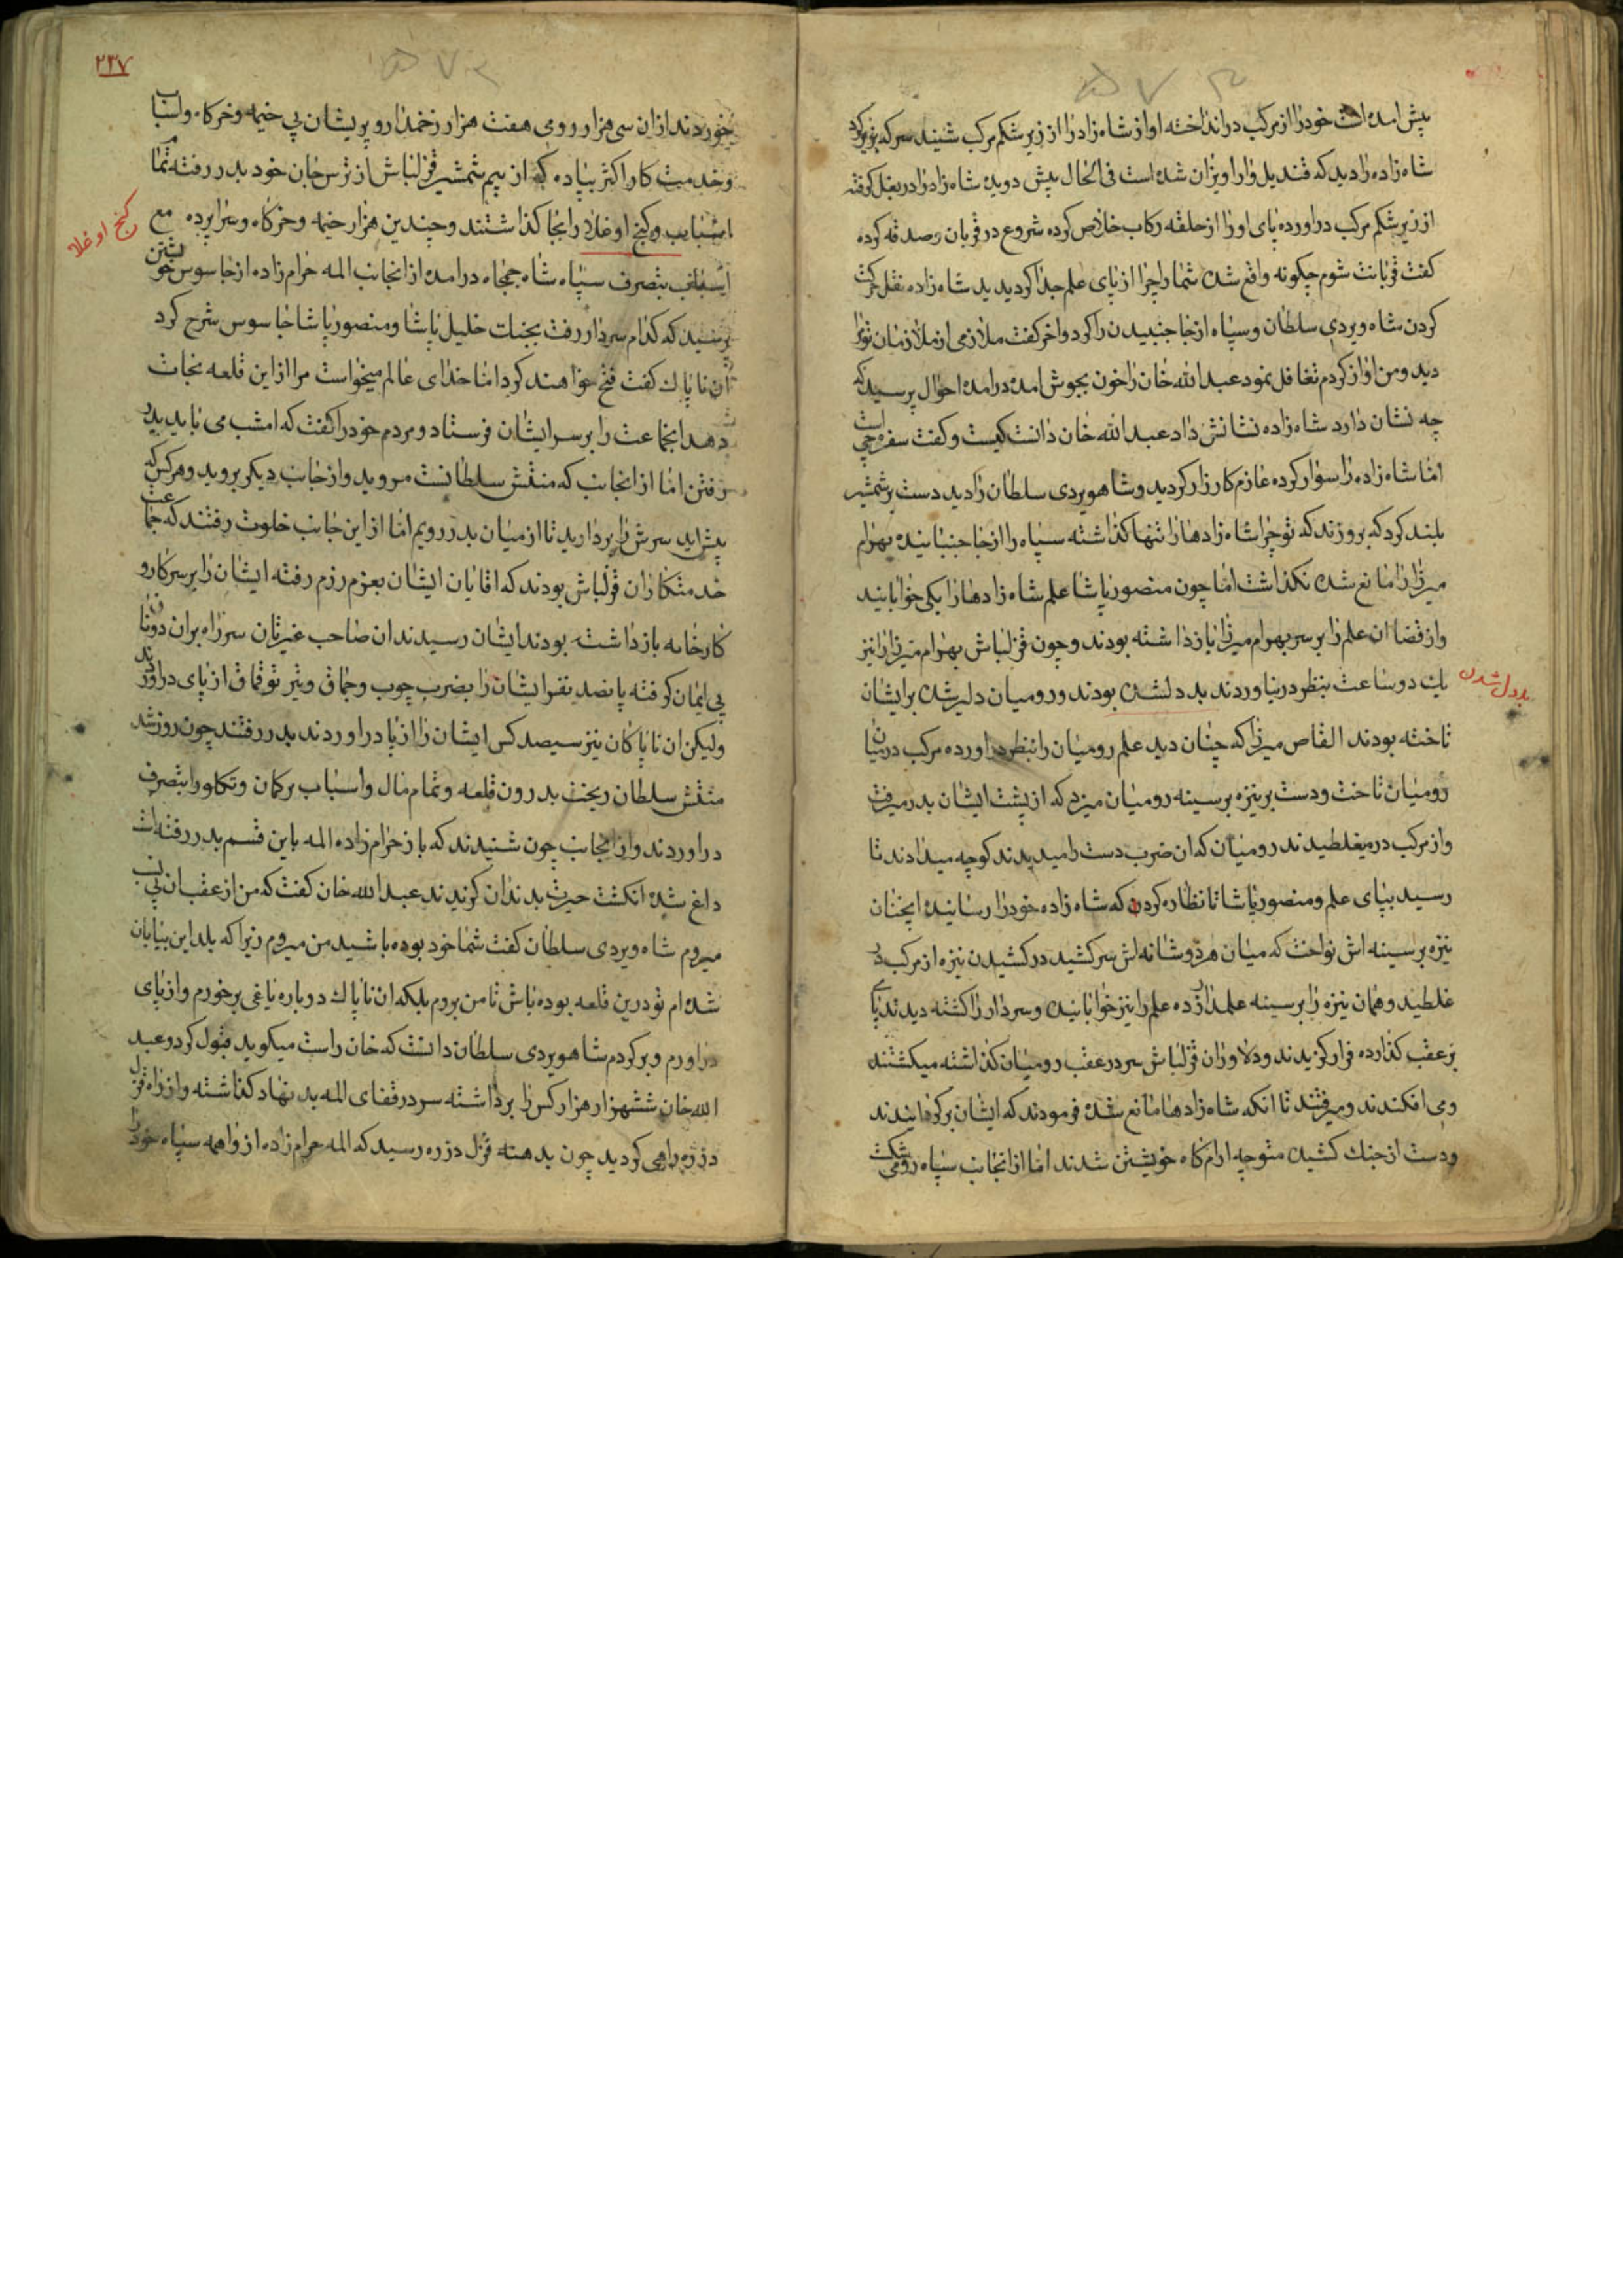 پیش امده است خودرا از مرکب در انداخته اواز شاه زاده را از زیر شکم مرکب شنید سر که بزیر کرد
شاه زاده را دید که قندیل وار اویزان شده است فی الحال پیش دویده شاه زاده را در بغل کرفته
از زیر شکم مرکب در اورده پای اورا از حلقه رکاب خلاص کرده شروع در قربان و صدقه کرده
کفت قربانت شوم چکونه واقع شده شما را چرا از پای علم جدا کردیدید شاه زاده نقل حرکت
کردن شاه ویردی سلطان و سپاه از جا جنبیدن را کرد و اخر کفت ملازمی از ملازمان تو مرا
دید و من اواز کردم تغافل نمود عبد الله خان را خون بجوش امده در امده احوال پرسید که
چه نشان دارد شاه زاده نشانش داد عبد الله خان دانست کیست و کفت سفره چی است
اما شاه زاده را سوار کرده عازم کارزار کردید و شاهویردی سلطان را دید دست بر شمشیر
بلند کرد که بروزند که تو چرا شاه زادها را تنها کذاشته سپاه را از جا جنبانیده بهرام
میرزا مانع شده نکذاشت اما چون منصور پاشا علم شاه زادها را یکی خوابانید
و از قضا ان علم را بر سر بهرام میرزا بازداشته بودند و چون قزلباش بهرام میرزا را نیز
یک دو ساعت بنظر در نیاوردند بد دلشده بودند و رومیان دلیر شده بر ایشان
بد دل شدن
تاخته بودند القاص میرزا که چنان دید علم رومیان را بنظر در اورده مرکب در میان
رومیان تاخت و دست بر نیزه بر سینه رومیان میزد که از پشت ایشان بدر میرفت
و از مرکب در میغلطیدند رومیان که ان ضرب دست را میدیدند کوچه میدادند تا
رسید بپای علم و منصور پاشا تا نظاره کردن که شاه زاده خودرا رسانیده انچنان
نیزه بر سینه اش نواخت که میان هر دو شانه اش سر کشید در کشیدن نیزه از مرکب در
غلطید و همان نیزه را بر سینه علمدار زده علم را نیز خوابانیده و سردار را کشته دیدند پای
بر عقب کذارده فرار کزیدند و دلاوران قزلباش سر در عقب رومیان کذاشته میکشتند
و می افکندند و میرفتند تا انکه شاه زادها مانع شده فرمودند که ایشان بر کردانیدند
و دست از جنک کشیده متوجه ارامکاه خویشتن شدند اما از انجانب سپاه رومی شکست
۲۳۷
خوردند از ان سی هزار رومی هفت هزار زخمدار و پریشان بی خیمه و خرکاه و اسباب
و خدمتکار اکثر پیاده که از بیم شمشیر قزلباش از ترس جان خود بدر رفته تمام
اسباب و کنج اوغلا را بجا کذاشتند و چندین هزار خیمه و خرکاه و سراپرده مع
کنج اوغلا
اسباب بتصرف سپاه شاه جمجاه در امده از انجانب المه حرام زاده از جاسوس خویشتن
پرسید که کدام سردار رفت بجنک خلیل پاشا و منصور پاشا جاسوس شرح کرد
ان ناپاک کفت فتح خواهند کرد اما خدای عالم میخواست مرا از این قلعه نجات
دهد انجماعت را بر سر ایشان فرستاد و مردم خودرا کفت که امشب می باید بدر
رفتن اما از انجانب که منتش سلطانست مروید و از جانب دیکر بروید و هرکس که
پیش اید سرش را بردارید تا از میان بدر رویم اما از این جانب خلوت رفتند که جماعت
خدمتکاران قزلباش بودند که اقایان ایشان بعزم رزم رفته ایشان را بر سر کار و
کارخانه بازداشته بودند ایشان رسیدند ان صاحب غیرتان سر راه بر ان دونان
بی ایمان کرفته پانصد نفر ایشان را بضرب چوب و چماق و تیر توقماق از پای در اوردند
ولیکن ان ناپاکان نیز سیصد کس ایشان را از پا در اوردند بدر رفتند چون روز شد
منتش سلطان ریخت بدرون قلعه و تمام مال و اسباب برکمان و تکلورا بتصرف
در اوردند و از انجانب چون شنیدند که باز حرام زاده المه باین قسم بدر رفته است
داغ شده انکشت حیرت بدندان کزیدند عبد الله خان کفت که من از عقب ان بی
میروم شاه ویردی سلطان کفت شما خود بوده باشید من میروم زیرا که بلد این بیابان
شده ام تو درین قلعه بوده باش تا من بروم بلکه ان ناپاک دوباره یاغی برخورم و از پای
در اورم و بر کردم شاهویردی سلطان دانست که خان راست میکوید قبول کرد و عبد
الله خان ششهزار هزار کس را برداشته سر در قفای المه بد نهاد کذاشته و از راه قزل
دزره راهی کردید چون بدهنه قزل دزره رسید که المه حرام زاده از واهمه سپاه خودرا